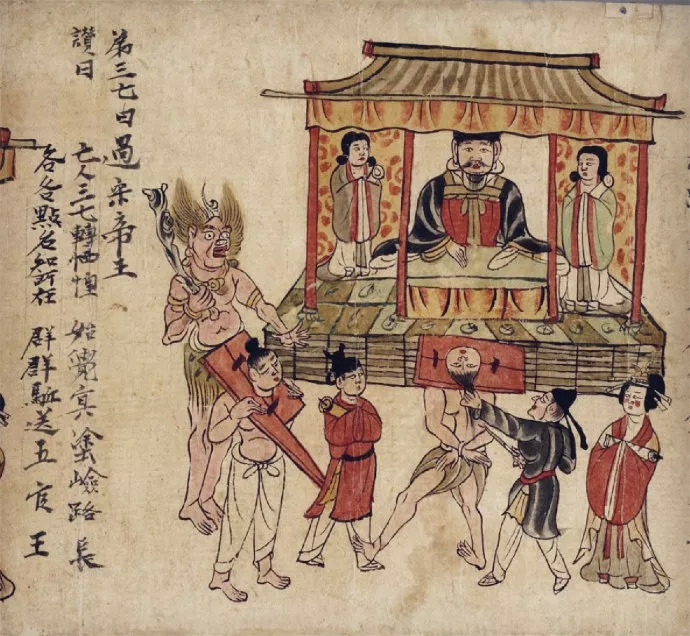 弟三七日過宋帝王
讚曰 亡人三七轉恓惶 始覺冥塗嶮路長
各各點名知所在 群群駈送五官王